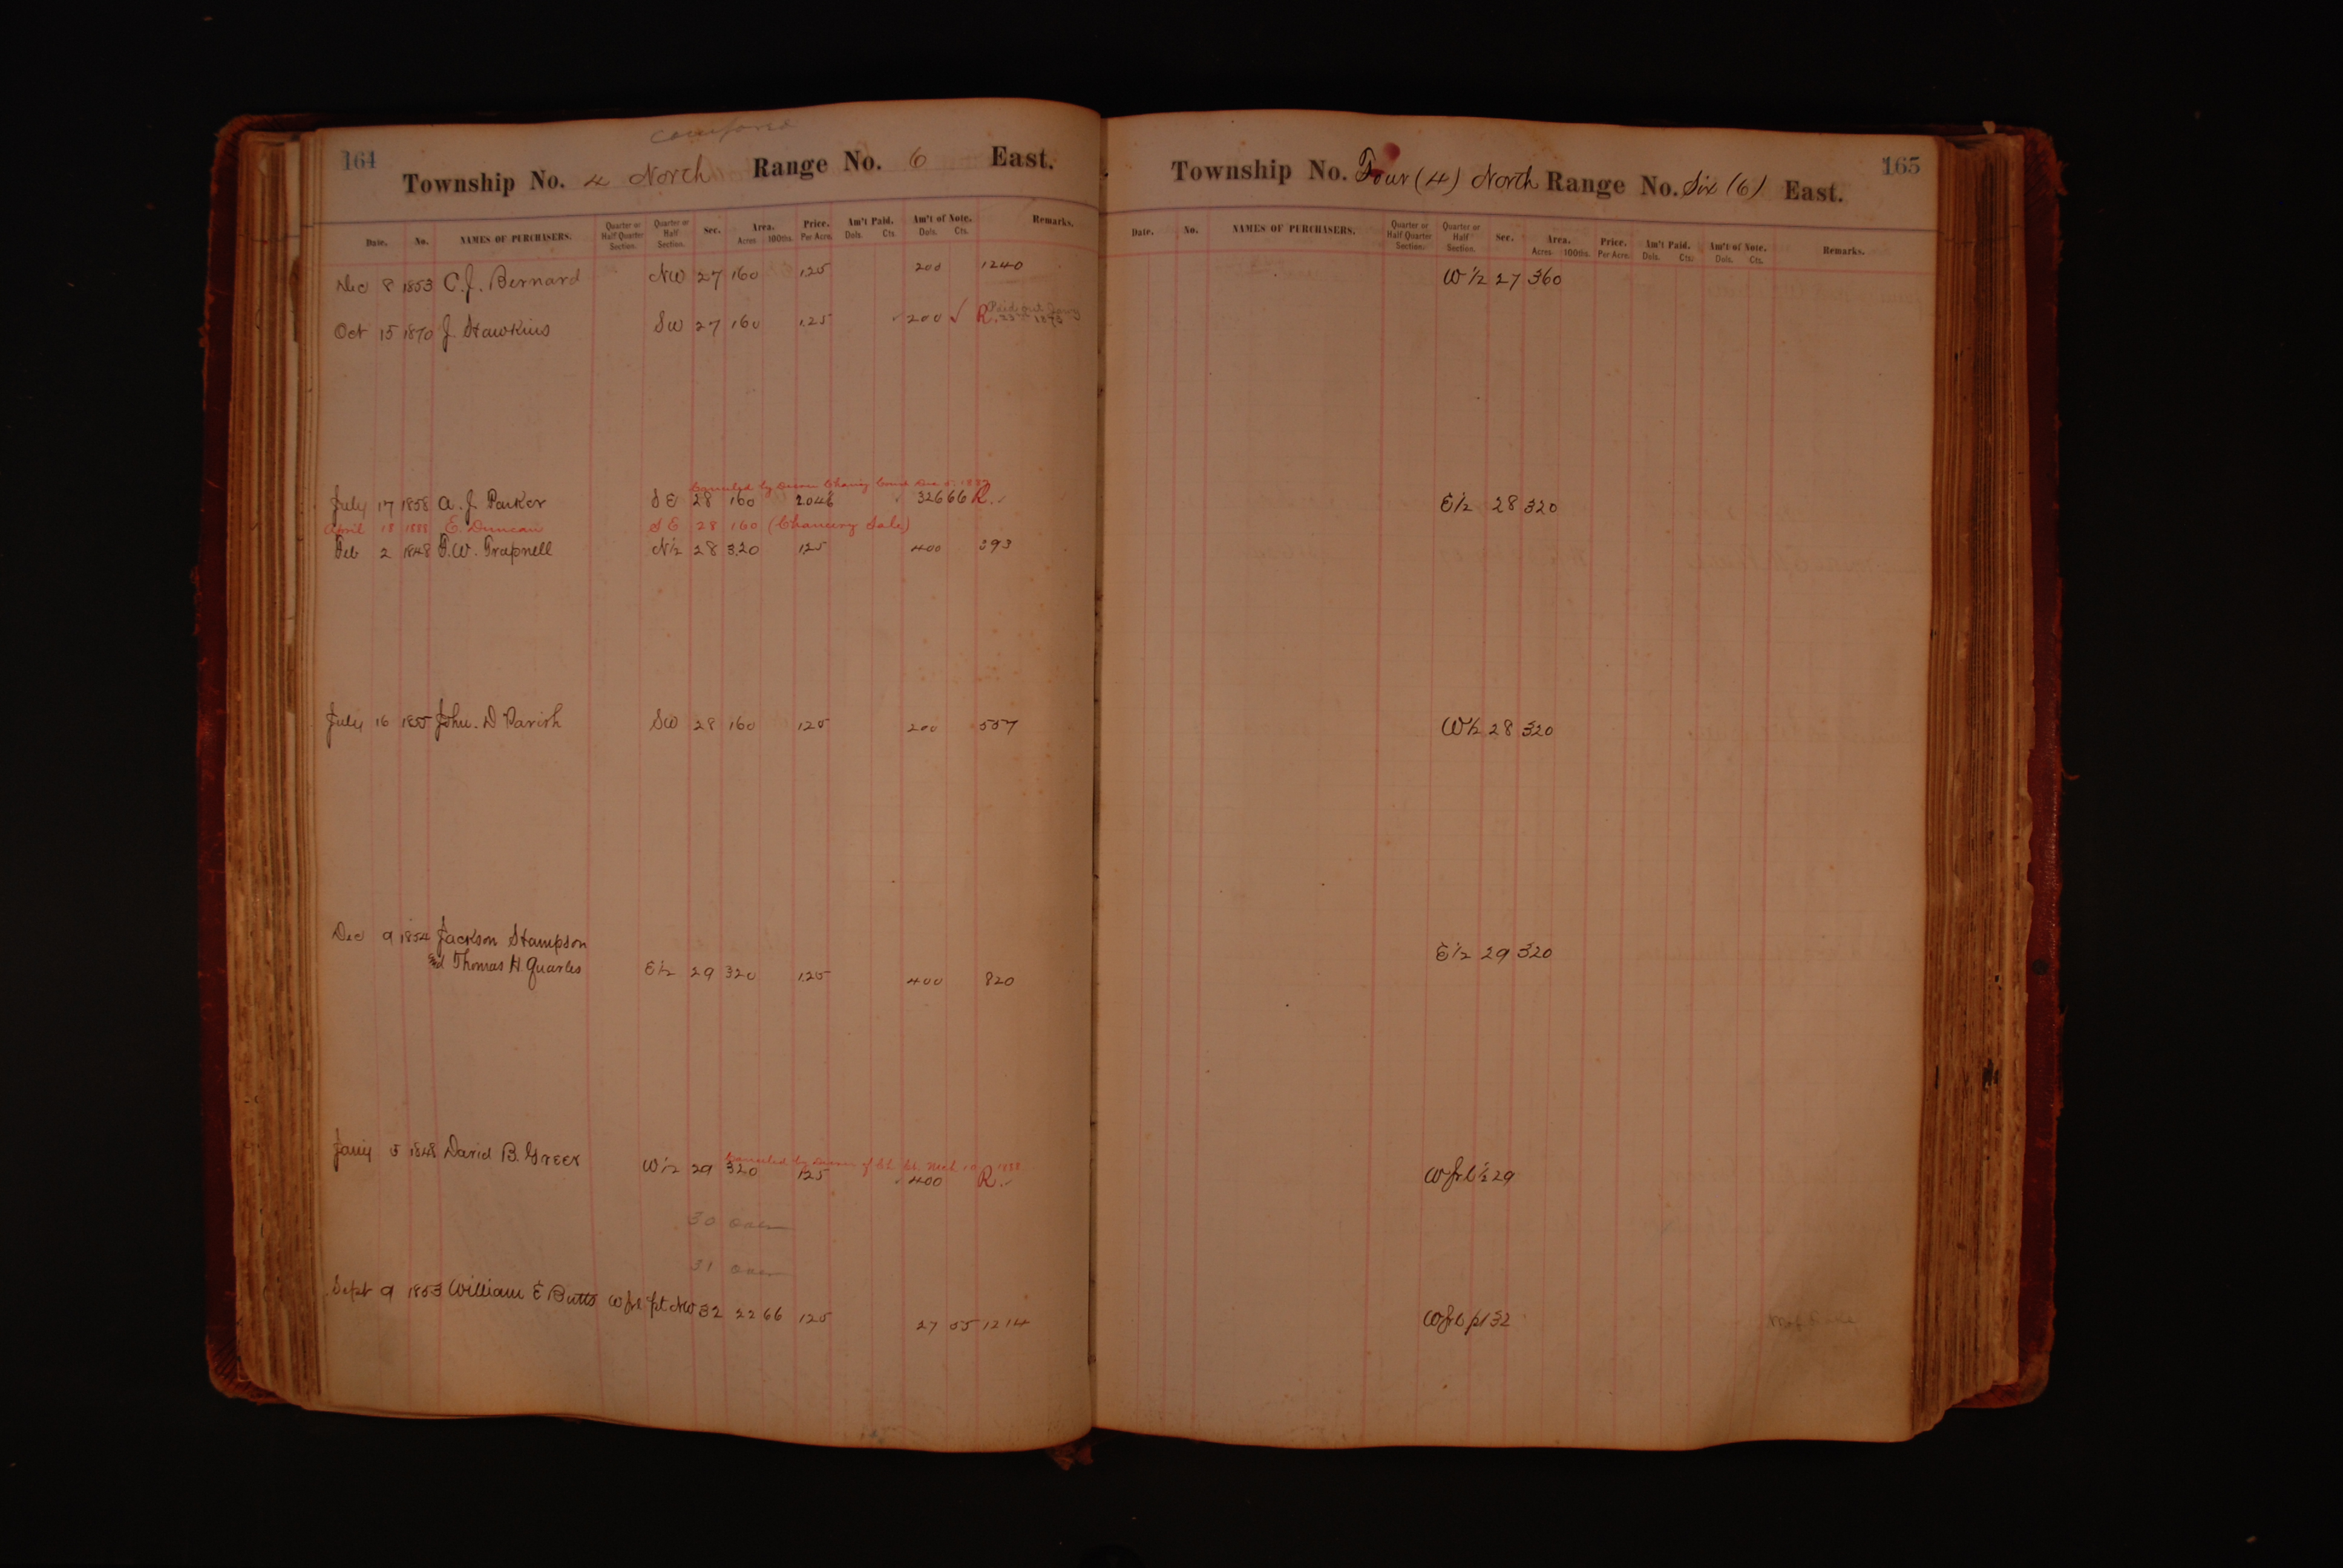 164
Township No. 4 North Range No. 6 East.
Date. No. NAMES OF PURCHASERS. Quarter or Half Quarter Section. Quarter or Half Section. Sec. Area. Acres 100ths. Price. Per Acre. Am't Paid. Dols. Cts. Am't of Note. Dols. Cts. Remarks.
Dec 8 1853 C. J. Bernard NW 27 160 125 200 1240
Oct 15 1870 J Hawkins SW 27 160 125 200 ✓ R. Paid out
July 17 1858 A. J. Parker S E 28 160 2.04⅙ 326 66 R. ✓
April 18 1888 E. Duncan S E 28 160 (Chancery Sale)
Feb 2 1848 F. W. Trapnell N½ 28 320 125 400 393
July 16 1855 John. D Parish SW 28 160 125 200 557
Dec 9 1854 Jackson Stampson
and Thomas H. Quarles E½ 29 320 125 400 820
Cancelled by Decree of Ch. Ct. Mch 10 1888
Jany 5 1848 David B. Greer W½ 29 320 125 400 R. ✓
30 over
31 over
Sept 9 1853 William E Butts W frl pt NW 32 22 66 125 27 55 1214
165
Township No. Four (4) North Range No. Six (6) East.
Date. No. NAMES OF PURCHASERS. Quarter or Half Quarter Section. Quarter or Half Section. Sec. Area. Acres 100ths. Price. Per Acre. Am't Paid. Dols. Cts. Am't of Note. Dols. Cts. Remarks.
W ½ 27 360
E ½ 28 320
W ½ 28 320
E ½ 29 320
W frl ½ 29
W frl pt 32